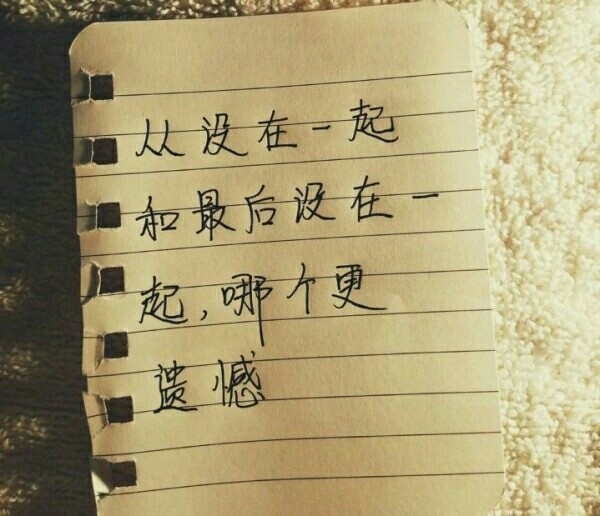 从没在一起
和最后没在一
起,哪个更
遗憾